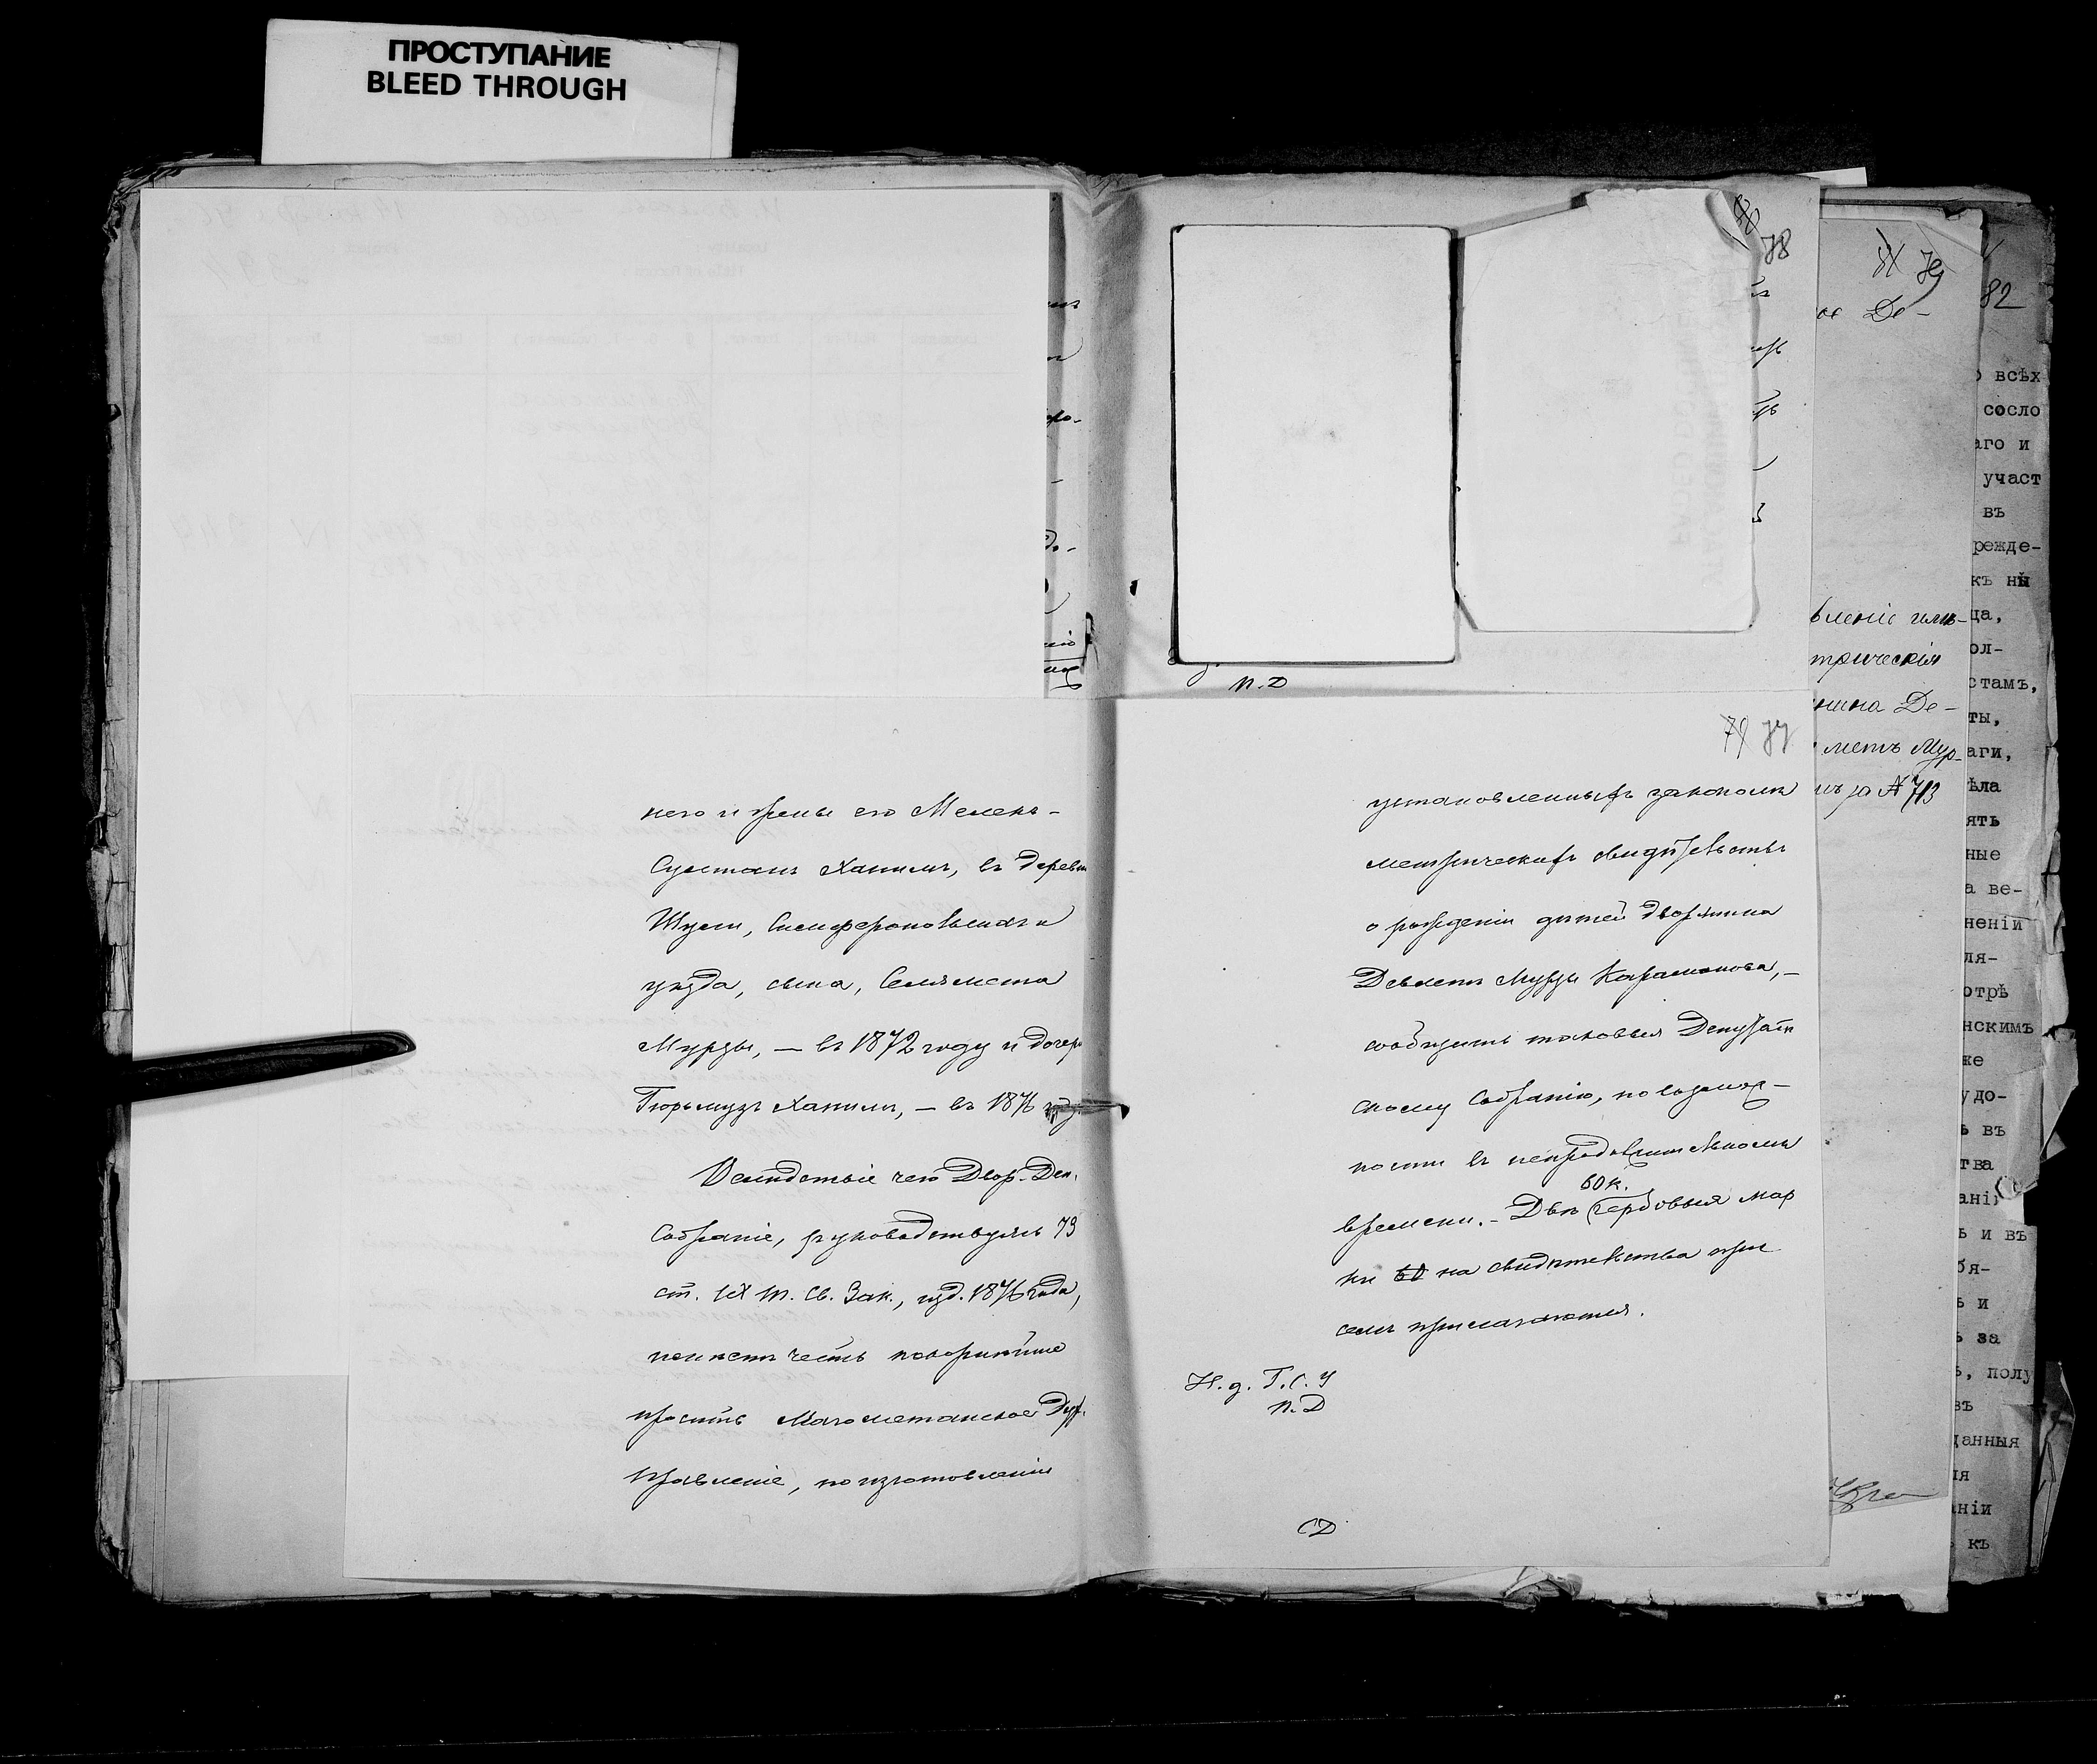 ПРОСТУПАНИЕ
BLEED THROUGH
него и жены его Мелекъ-
Султанъ Ханымъ, въ деревнѣ
Шули, Симферопольскаго
уѣзда, сына, Селямета
Мурзы, — въ 1872 году и дочери
Гюрьмузъ Ханымъ, — въ 1876 году
Вслѣдствіе чего Двор. Деп.
Собраніе, руководствуясь 73
ст. IX т. Св. Зак., изд. 1876 года,
имѣетъ честь покорнѣйше
просить Магометанское Дух.
Правленіе, по изготовленіи
78
п. Д
77
установленныхъ закономъ
метрическихъ свидѣтельствъ
о рожденіи дѣтей дворянина
Девлетъ Мурзы Караманова, —
сообщить таковыя Депутат
скому Собранію, по возмож-
ности въ непродолжительномъ
60 к.
времени. — Двѣ гербовыя мар
ки 60 на свидѣтельства при
семъ прилагаются.
И. д. Г. С. У
п. Д
СД
79
ое Де-
вленіе имѣ-
трическія
нина Де-
метъ Мур-
за № 713
82
о всѣх
сосло
аго и
участ
въ
режде-
къ ны
ца,
ол-
стамъ,
ты,
аги,
ѣла
ять
ные
а ве-
неніи
ля-
отрѣ
нскимъ
же
удо-
ь въ
тва
ані
ь и въ
бя-
ь и
ь за
ь, полу
въ
данныя
ія
ніи
къ